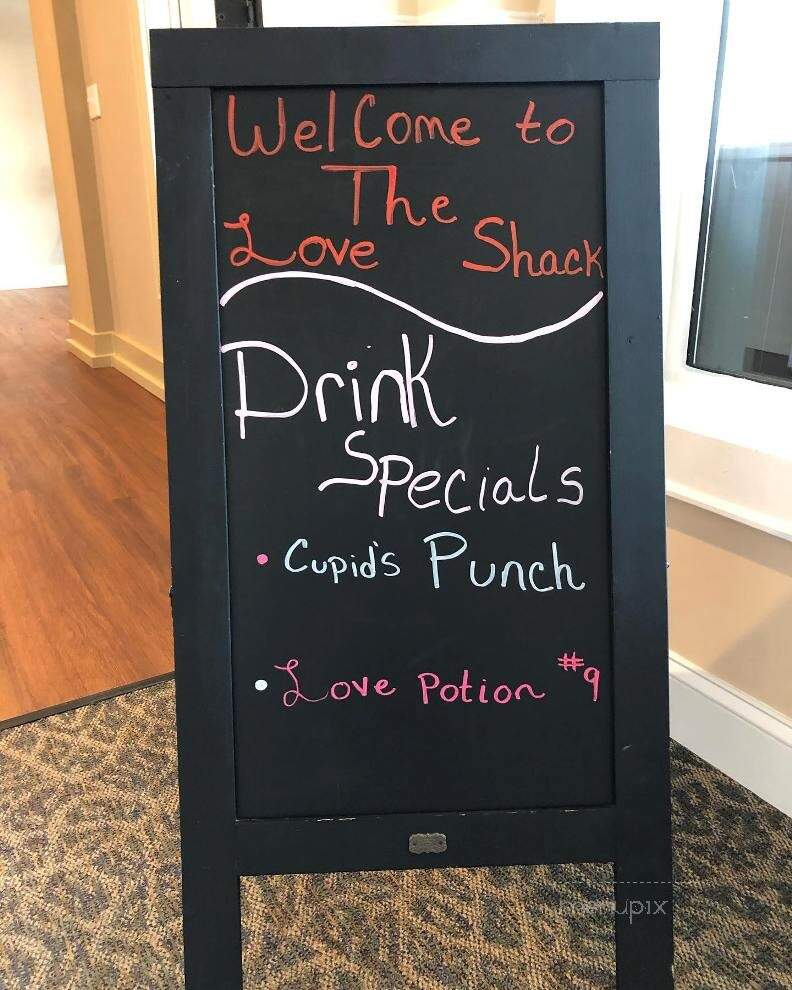 WelCome to
The
Love Shack
Drink
Specials
• Cupid's Punch
• Love Potion #9